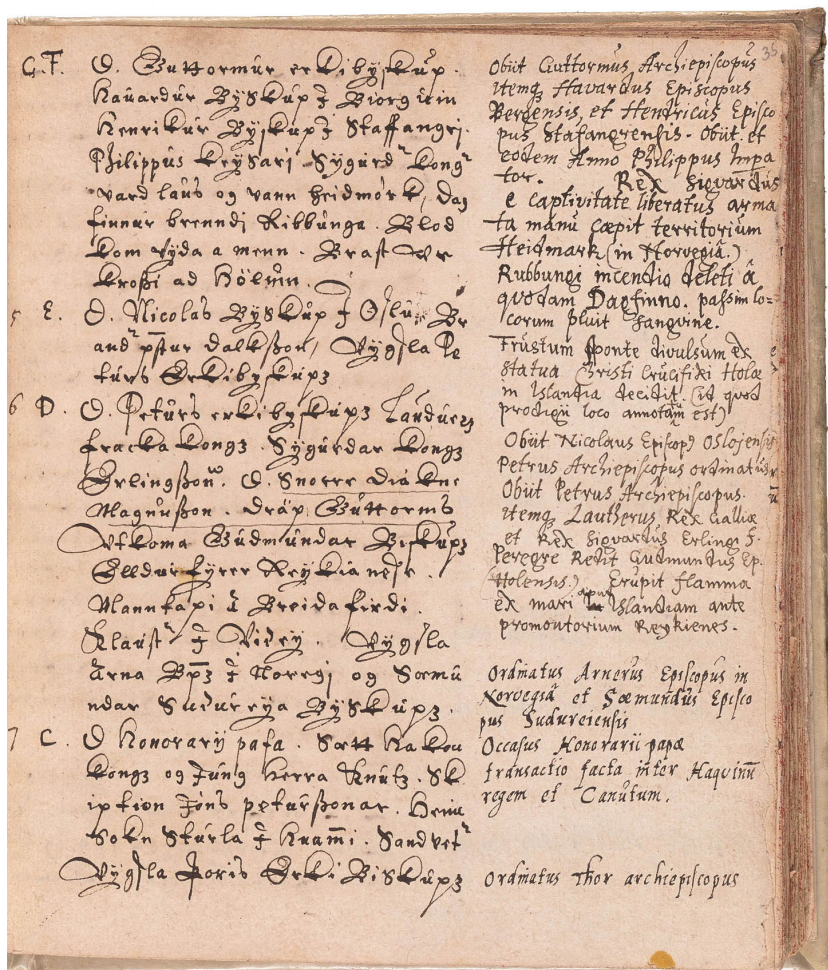 35
G.F. O. Guttormur erkibyskup.
Hauardur Byskup J Biorg uin
Henrikur Byskup J Staffangri.
Philippus keysari Sygurdr kongr
vard laus og vann heidmork, dag
finnur brenndi Ribbunga. Blod
kom vyda a menn. Brast vr
krossi ad Holum.
5 E. O. Nicolas Byskup J Oslu. Br
andr pstur dalksson, Vygsla Pe
turs Erkibyskups
6 D. O. Peturs erkibyskups Lauduers
fracka kongs. Sygurdar kongs
Erlingssonr. O. Snorre diakne
Magnusson. drap Guttorms
Utkoma Gudmundar Biskups
Elldur fyrer Reykianese.
Manntapi a Breidafirdi.
Klaustr J Videy. Vygsla
Arna Bps J Noregi og Sæmu
ndar Sudureya Byskups.
7 C. O Honorarij pafa. Sætt Hakon
kongs og Jung herra Knuts. Sk
iption Jons peturssonar. Heim
sokn Sturla J Huammi. Sandvetr
Vygsla Þoris Erki Biskups
Obiit Guttormus Archiepiscopus
itemq Havardus Episcopus
Bergensis, et Henricus Episco
pus Stafangrensis. Obiit et
eodem Anno Philippus Impa
tor. Rex Sigvardus
e captivitate liberatus arma
ta manu cæpit territorium
Heidmark (in Norvegiâ.)
Rubbungi incendio deleti â
quodam Dagfinno. passim lo=
corum pluit sanguine.
Frustum sponte divulsum ex
statua Christi Crucifixi Holæ
in Islandia decidit. (id quod
prodigii loco annotatum est)
Obiit Nicolaus Episcop9 Oslojensis
Petrus Archiepiscopus ordinatus
Obiit Petrus Archiepiscopus.
itemq Lautherus Rex Galliæ
et Rex Sigvardus Erlingi f.
Peregre Rediit Gudmundus Ep.
(Holensis.) Erupit flamma
ex mari apud Islandiam ante
promontorium Reykienes.
Ordinatus Arnerus Episcopus in
Norvegiâ et Sæmundus Episco
pus Sudureiensis
Occasus Honorarii papæ
transactio facta inter Haqvinū
regem et Canutum.
Ordinatus Thor archiepiscopus